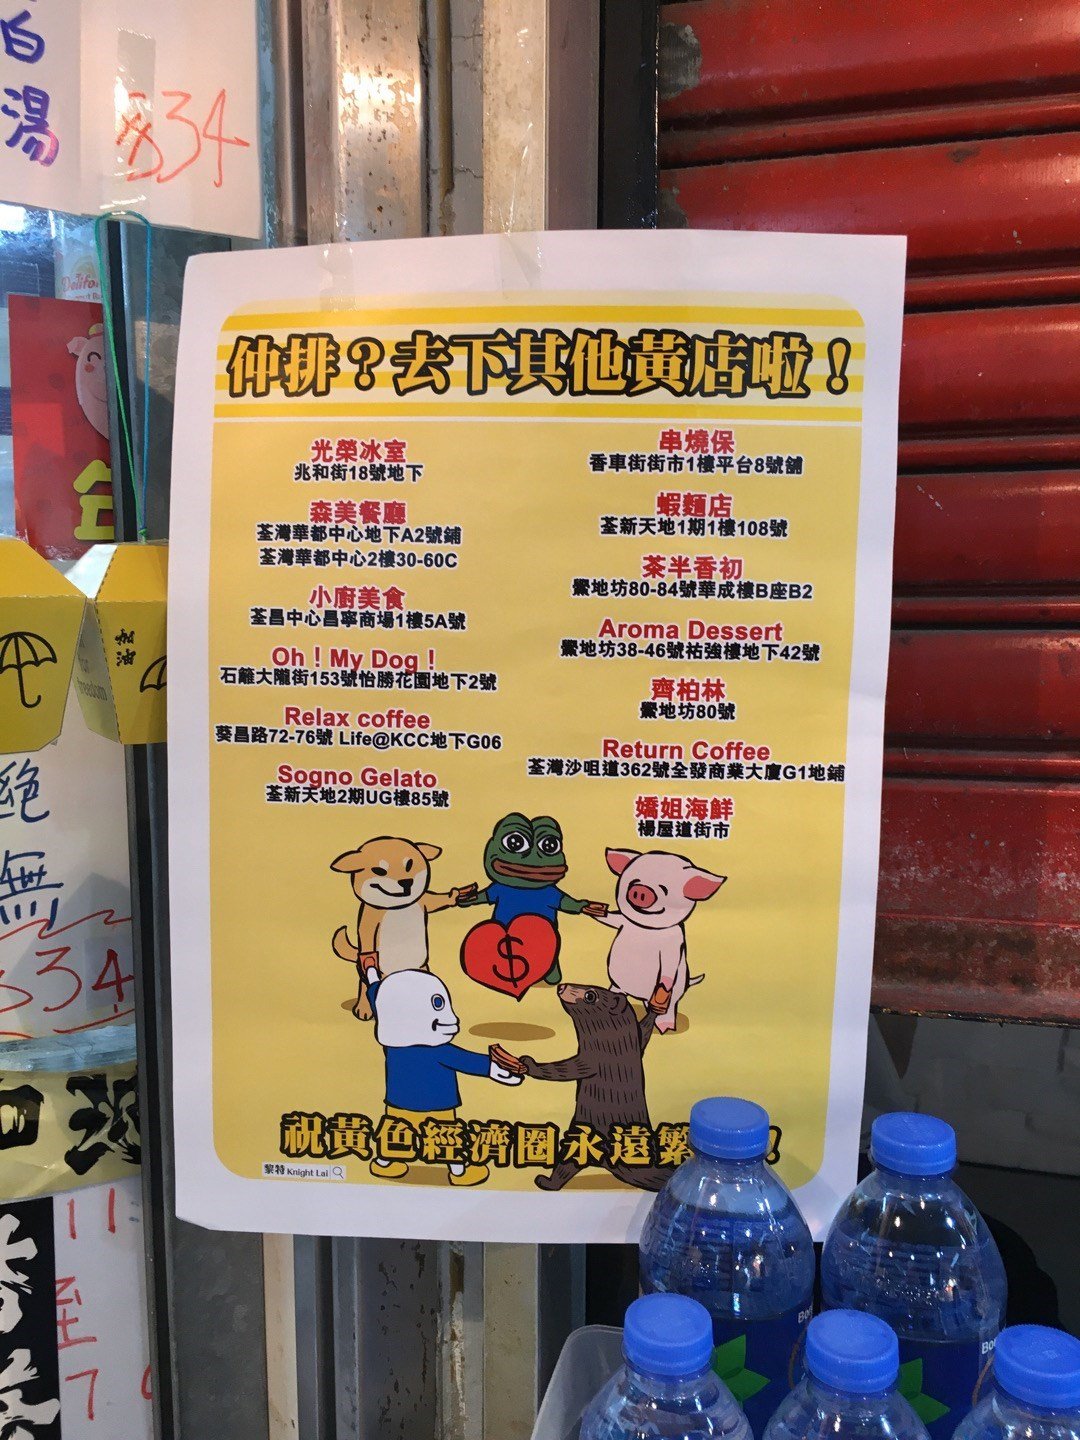 白
湯
$34
仲排？去下其他黃店啦！
光榮冰室
兆和街18號地下
森美餐廳
荃灣華都中心地下A2號鋪
荃灣華都中心2樓30-60C
小廚美食
荃昌中心昌寧商場1樓5A號
Oh ! My Dog !
石籬大隴街153號怡勝花園地下2號
Relax coffee
葵昌路72-76號 Life@KCC地下G06
Sogno Gelato
荃新天地2期UG樓85號
串燒保
香車街街市1樓平台8號舖
蝦麵店
荃新天地1期1樓108號
茶半香初
鱟地坊80-84號華成樓B座B2
Aroma Dessert
鱟地坊38-46號祐強樓地下42號
齊柏林
鱟地坊80號
Return Coffee
荃灣沙咀道362號全發商業大廈G1地鋪
嬌姐海鮮
楊屋道街市
$
祝黃色經濟圈永遠繁
黎特 Knight Lai
加油
絕
無
$34
11:
至